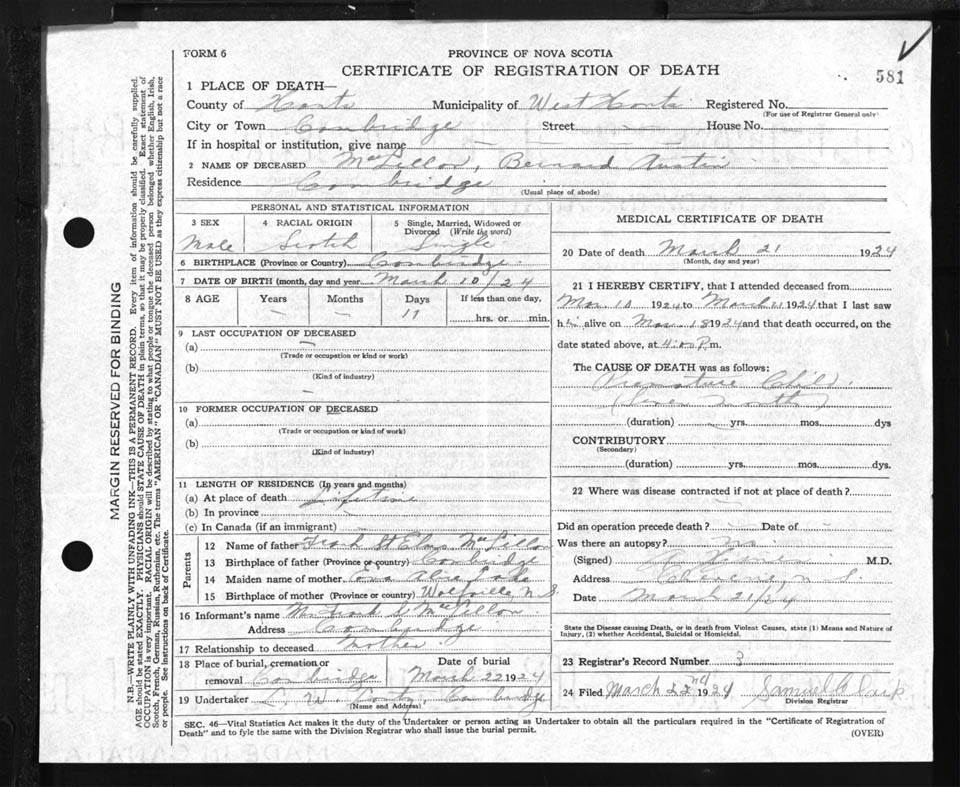 FORM 6
PROVINCE OF NOVA SCOTIA
CERTIFICATE OF REGISTRATION OF DEATH
581
1 PLACE OF DEATH—
County of Hants Municipality of West Hants Registered No.
(For use of Registrar General only)
City or Town Cambridge Street — House No. —
If in hospital or institution, give name
2 NAME OF DECEASED MacLellon, Bernard Austin
Residence Cambridge
(Usual place of abode)
PERSONAL AND STATISTICAL INFORMATION
3 SEX Male
4 RACIAL ORIGIN Scotch
5 Single, Married, Widowed or Divorced (Write the word) Single
6 BIRTHPLACE (Province or Country) Cambridge
7 DATE OF BIRTH (month, day and year March 10/24
8 AGE Years Months Days If less than one day,
— — 11 hrs. or min.
9 LAST OCCUPATION OF DECEASED
(a) —
(Trade or occupation or kind or work)
(b)
(Kind of industry)
10 FORMER OCCUPATION OF DECEASED
(a)
(Trade or occupation or kind of work)
(b)
(Kind of industry)
11 LENGTH OF RESIDENCE (In years and months)
(a) At place of death Lifetime
(b) In province —
(c) In Canada (if an immigrant) —
Parents
12 Name of father Frank St Elmo MacLellon
13 Birthplace of father (Province or country) Cambridge
14 Maiden name of mother Eva
15 Birthplace of mother (Province or country) Wolfville N.S.
16 Informant's name Frank MacLellon
Address Cambridge
17 Relationship to deceased Mother
18 Place of burial, cremation or removal Cambridge
Date of burial March 22 1924
19 Undertaker C. W. Cambridge
(Name and Address)
MEDICAL CERTIFICATE OF DEATH
20 Date of death March 21 1924
(Month, day and year)
21 I HEREBY CERTIFY, that I attended deceased from
Mar. 10 1924 to March 21 1924 that I last saw
him alive on Mar. 18 1924 and that death occurred, on the
date stated above, at 4:00 P.m.
The CAUSE OF DEATH was as follows:
Premature Child
(duration) yrs. mos. dys
CONTRIBUTORY
(Secondary)
(duration) yrs. mos. dys.
22 Where was disease contracted if not at place of death?
Did an operation precede death? — Date of —
Was there an autopsy? no
(Signed) M.D.
Address N S
Date March 21/24
State the Disease causing Death, or in death from Violent Causes, state (1) Means and Nature of
Injury, (2) whether Accidental, Suicidal or Homicidal.
23 Registrar's Record Number 3
24 Filed March 22nd 1924 Samuel Clark
Division Registrar
SEC. 46—Vital Statistics Act makes it the duty of the Undertaker or person acting as Undertaker to obtain all the particulars required in the "Certificate of Registration of
Death" and to fyle the same with the Division Registrar who shall issue the burial permit.
(OVER)
MARGIN RESERVED FOR BINDING
N.B.—WRITE PLAINLY WITH UNFADING INK—THIS IS A PERMANENT RECORD. Every item of information should be carefully supplied.
AGE should be stated EXACTLY. PHYSICIANS should STATE CAUSE OF DEATH in plain terms, so that it may be properly classified. Exact statement of
OCCUPATION is very important. RACIAL ORIGIN will be described by stating to what people or tongue the deceased person belonged whether English, Irish,
Scotch, French, German, Russian, Ruthenian, etc. The terms "AMERICAN" OR "CANADIAN" MUST NOT BE USED as they express citizenship but not a race
or people. See instructions on back of Certificate.